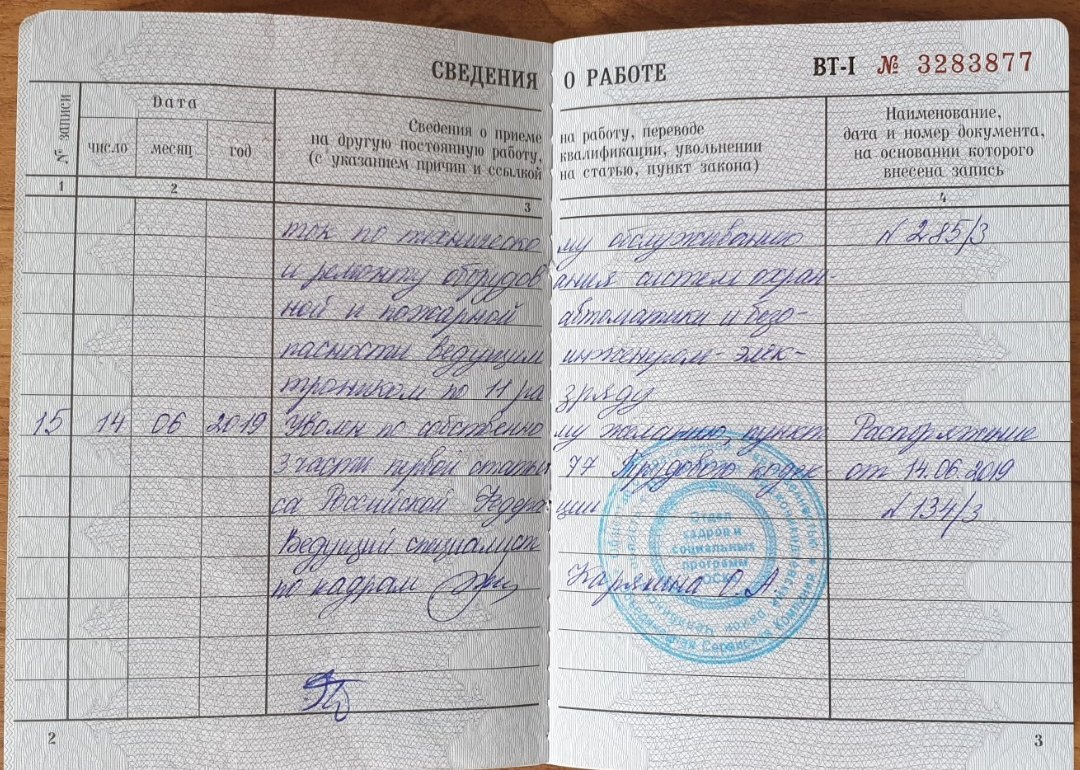 СВЕДЕНИЯ О РАБОТЕ ВТ-I № 3283877
№ записи
Дата
число месяц год
Сведения о приеме на работу, переводе
на другую постоянную работу, квалификации, увольнении
(с указанием причин и ссылкой на статью, пункт закона)
Наименование,
дата и номер документа,
на основании которого
внесена запись
1 2 3 4
ток по техническому обслуживанию N 285/3
и ремонту оборудования систем охран-
ной и пожарной автоматики и безо-
пасности ведущим инженером-элек-
троником по 11 разряду
15 14 06 2019 Уволен по собственному желанию, пункт Распоряжение
3 части первой статьи 77 Трудового кодек- от 14.06.2019
са Российской Федерации N 134/3
Ведущий специалист
по кадрам Карякина О.А.
Отдел
кадров и
социальных
программ
ОСК
2 3